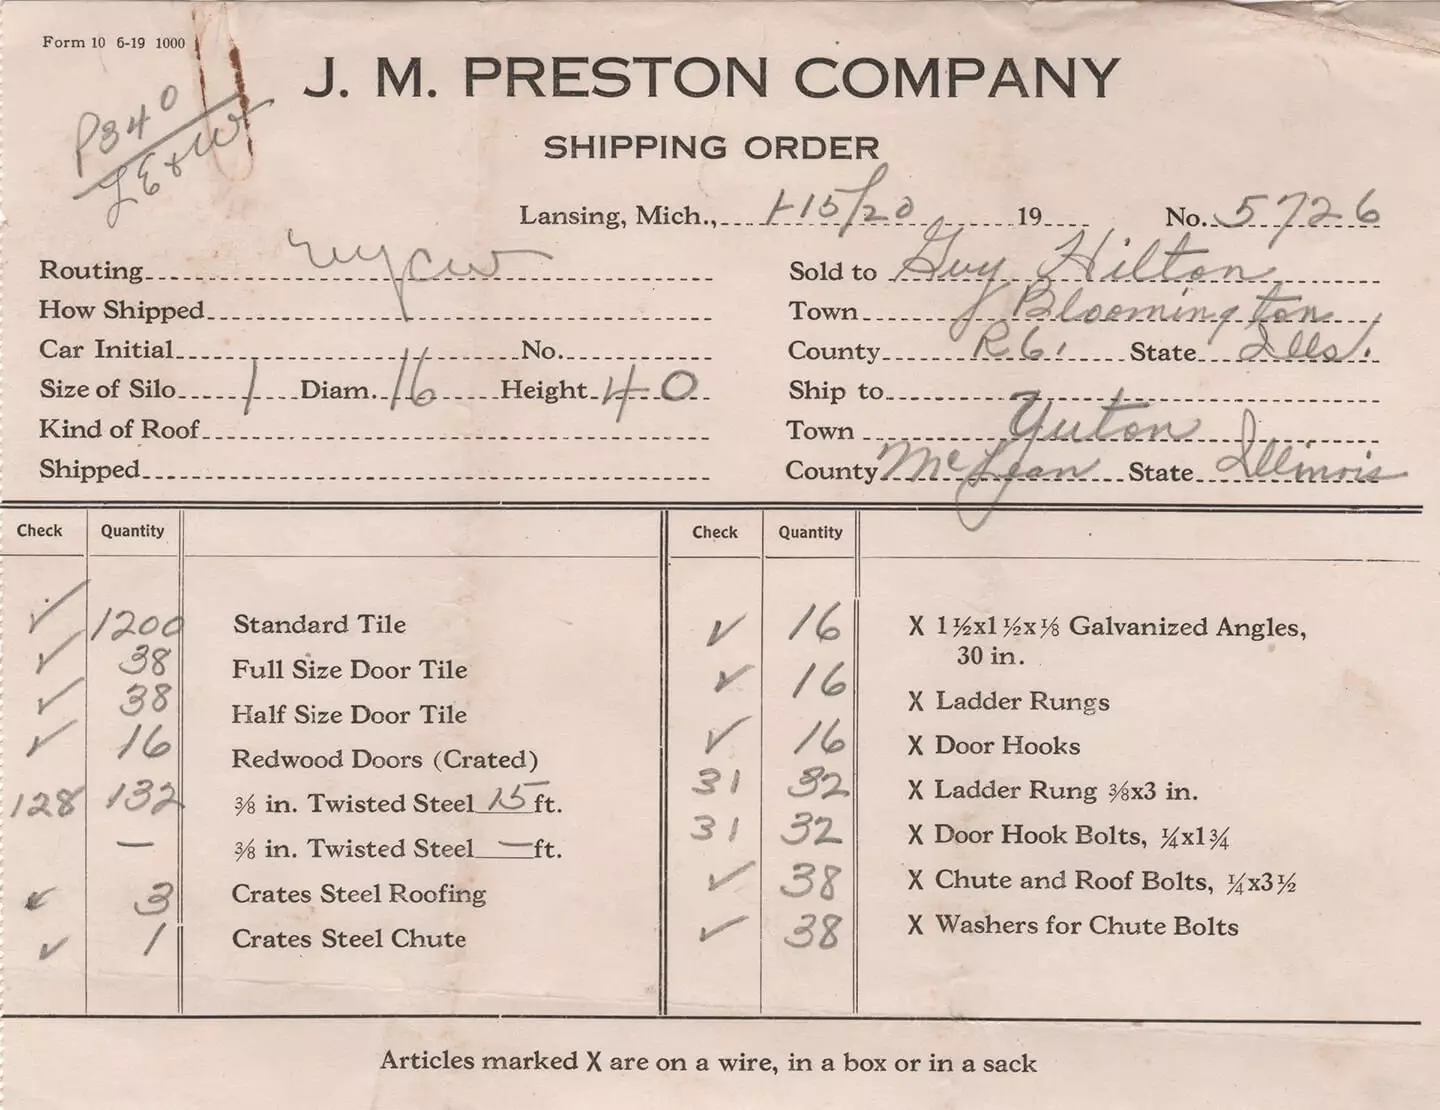 Form 10 6-19 1000
P340
J. M. PRESTON COMPANY
SHIPPING ORDER
Lansing, Mich., 1-15/20 19 No. 5726
Routing
Sold to Guy Hilton
How Shipped
Town Bloomington
Car Initial No.
County R6. State Ills.
Size of Silo 1 Diam. 16 Height 40
Ship to
Kind of Roof
Town Yuton
Shipped
County McLean State Illinois
Check Quantity
✓ 1200 Standard Tile
✓ 38 Full Size Door Tile
✓ 38 Half Size Door Tile
✓ 16 Redwood Doors (Crated)
128 132 ⅜ in. Twisted Steel 15 ft.
— ⅜ in. Twisted Steel — ft.
✓ 3 Crates Steel Roofing
✓ 1 Crates Steel Chute
Check Quantity
✓ 16 X 1½x1½x⅛ Galvanized Angles,
30 in.
✓ 16 X Ladder Rungs
✓ 16 X Door Hooks
31 32 X Ladder Rung ⅜x3 in.
31 32 X Door Hook Bolts, ¼x1¾
✓ 38 X Chute and Roof Bolts, ¼x3½
✓ 38 X Washers for Chute Bolts
Articles marked X are on a wire, in a box or in a sack